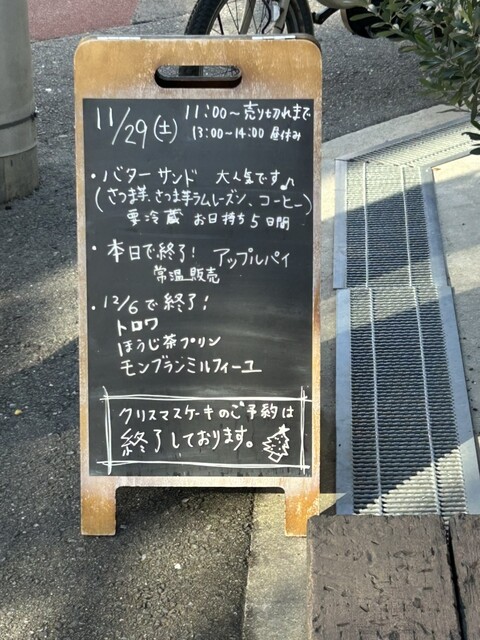 11/29(土) 11:00〜売り切れまで
13:00〜14:00 昼休み
・バターサンド 大人気です♪
(さつま芋、さつま芋ラムレーズン、コーヒー)
要冷蔵 お日持ち5日間
・本日で終了! アップルパイ
常温販売
・12/6で終了!
トロワ
ほうじ茶プリン
モンブランミルフィーユ
クリスマスケーキのご予約は
終了しております。